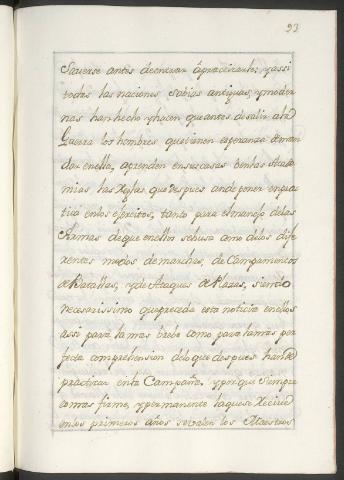 93
Saverse antes de entrar á practicarle; y assi
todas las naciones sabias antiguas, y moder
nas han hecho y hacen que antes de salir a la
Guerra los hombres que tienen esperanza de man
dar en ella, aprenden en sus casas o en las Acade
mias las Reglas, que despues an de poner en prac
tica en los exercitos, tanto para el manejo de las
Armas de que en ellos se husa como de los dife
rentes modos de marchar, de Campamentos
de Batallas, y de Ataques de Plazas, siendo
necesarissimo que preceda esta noticia en ellos
assi para la mas brebe como para la mas per
fecta comprehension de lo que despues han de
practicar en la Campaña, y porque siempre
es mas firme, y permanente la que se Recive
en los primeros años se valen los Maestros